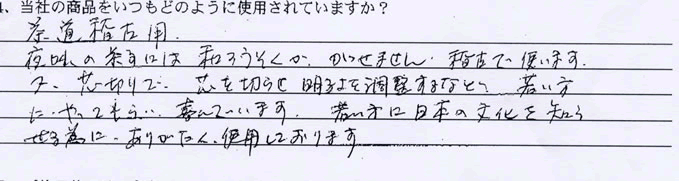 、当社の商品をいつもどのように使用されていますか？
茶道稽古用
夜咄の茶事には 和ろうそくが、かかせません 稽古で使います。
又、芯切りで、芯を切らせ 明るさを調整するなど、 若い方
に、やってもらい、喜んでいます。 若い方に日本の文化を知ら
せる為に、ありがたく、使用しております